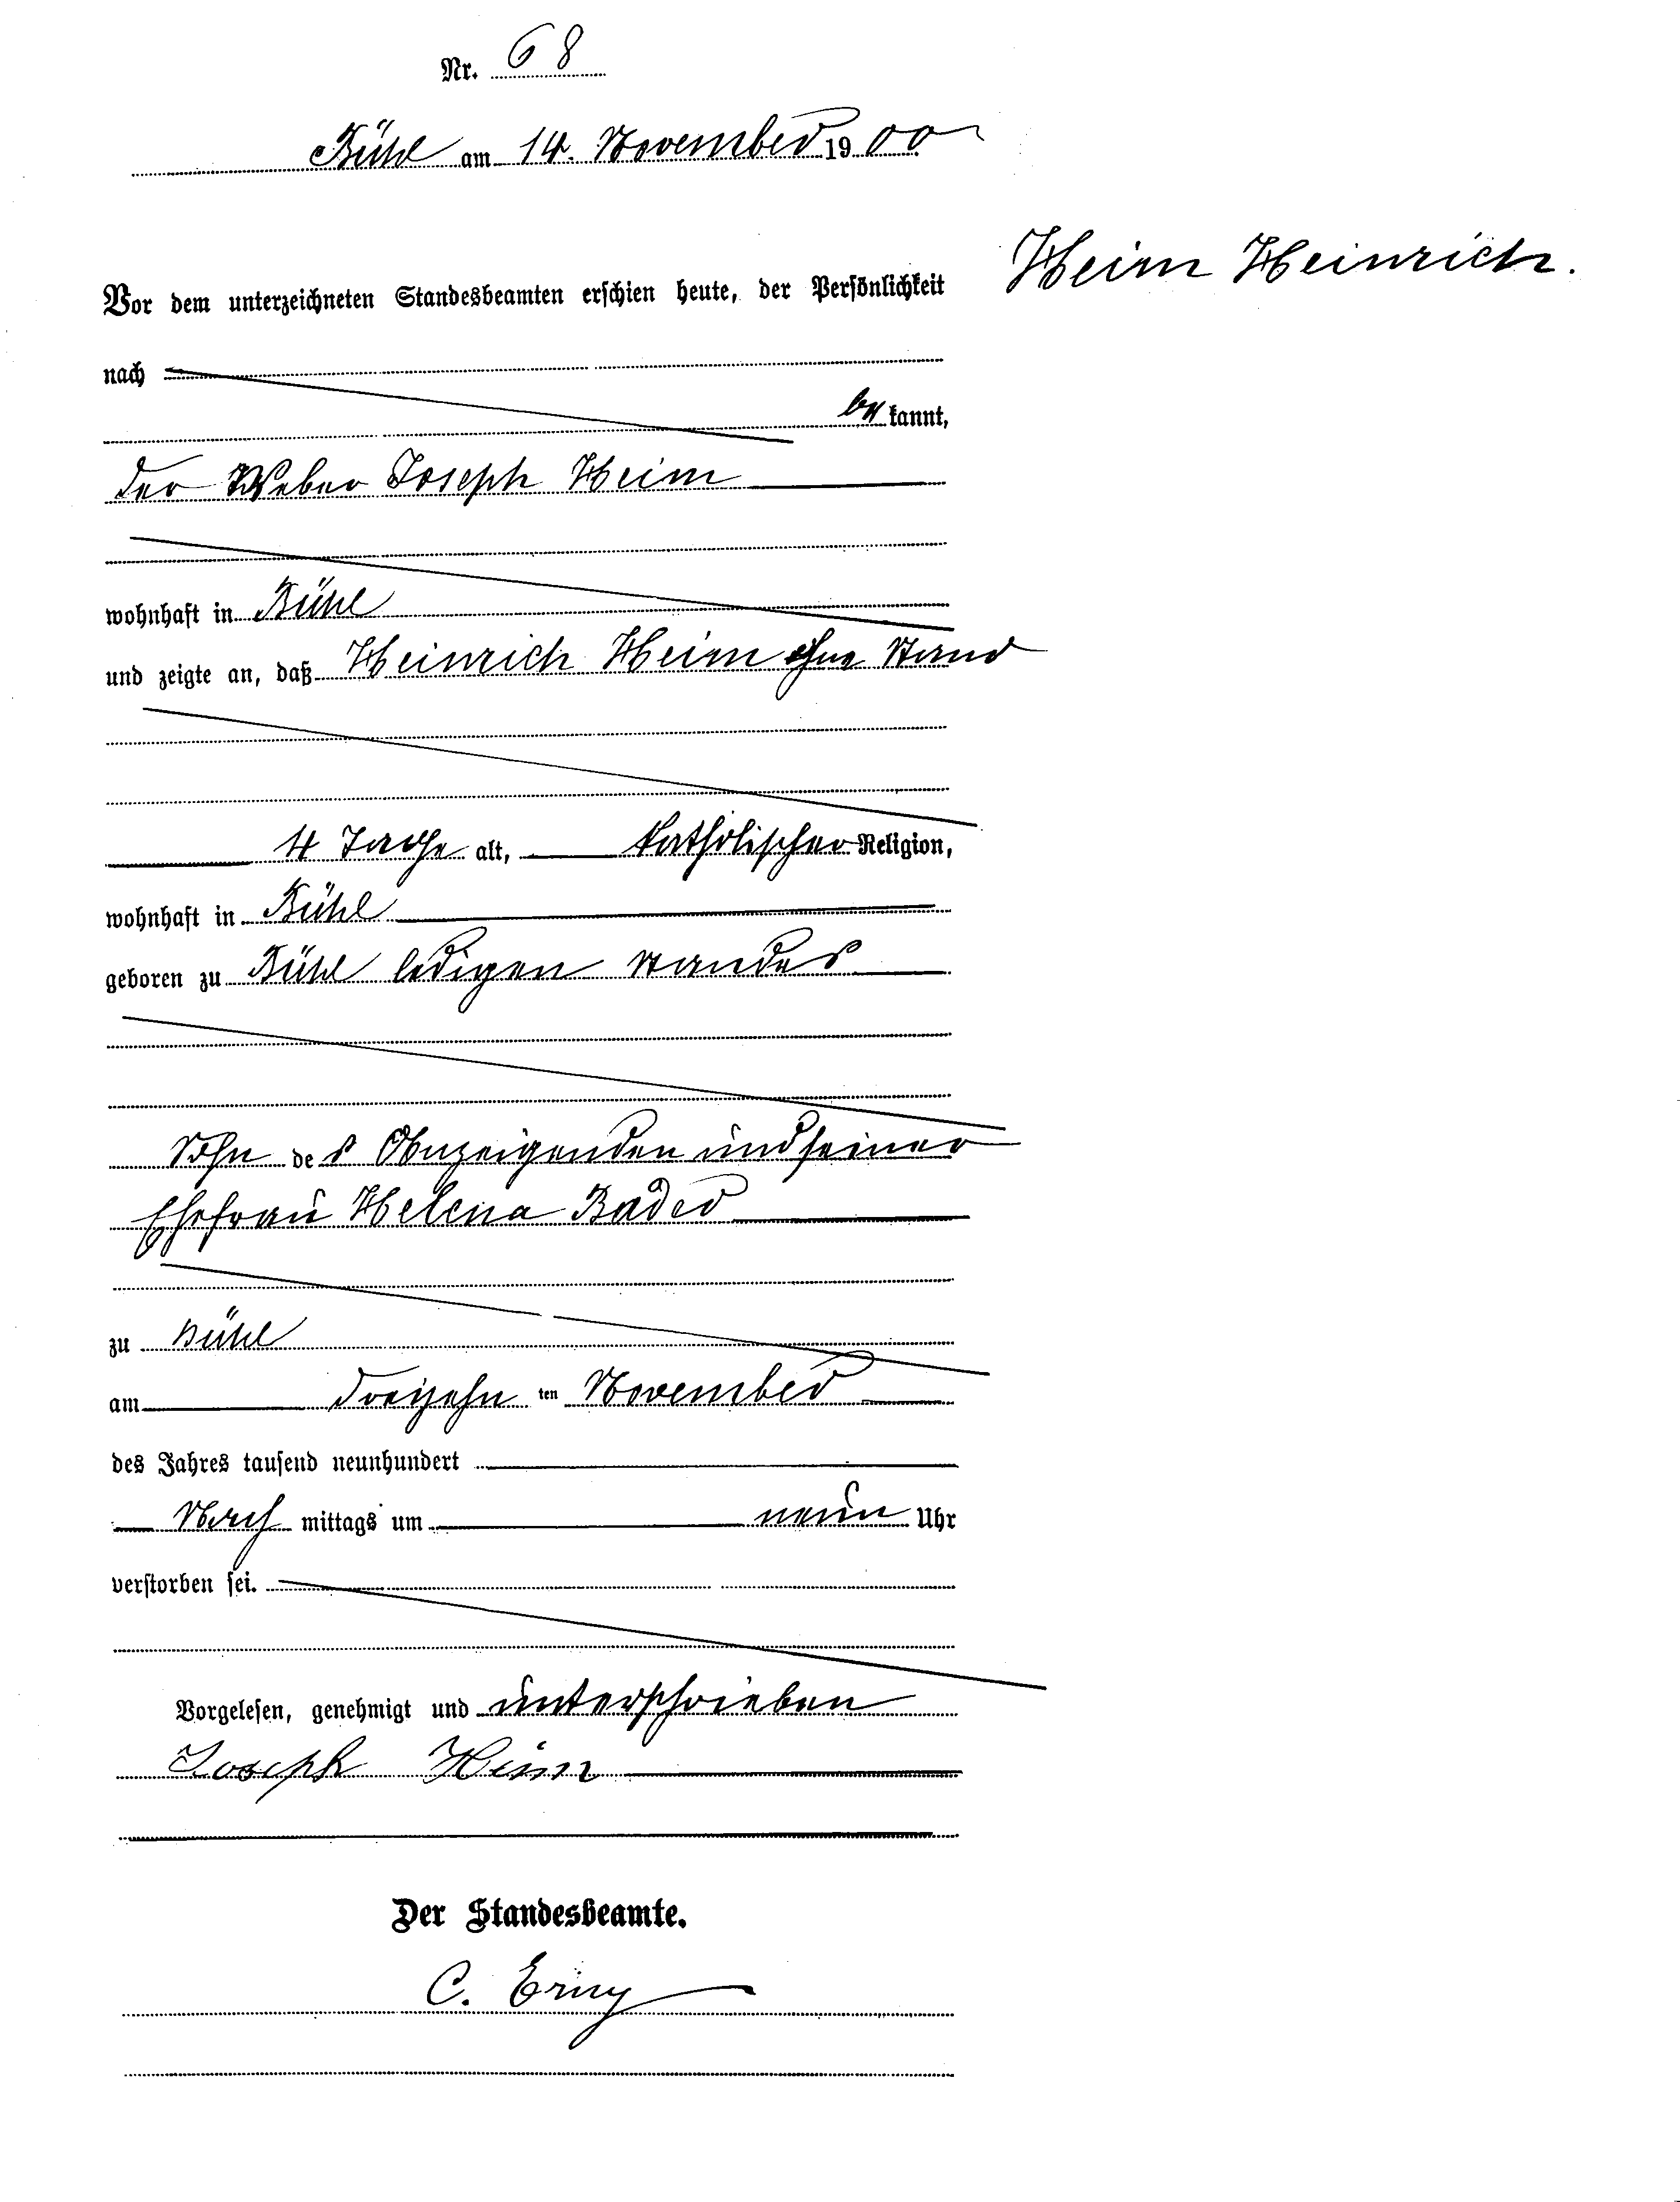 Nr. 68
Bühl am 14. November 1900
Heim Heinrich.
Vor dem unterzeichneten Standesbeamten erschien heute, der Persönlichkeit
nach
be kannt,
der Weber Joseph Heim
wohnhaft in Bühl
und zeigte an, daß Heinrich Heim ohne Stand
4 Tage alt, katholischer Religion,
wohnhaft in Bühl
geboren zu Bühl ledigen Standes
Sohn des Anzeigenden und seiner
Ehefrau Helena Bader
zu Bühl
am dreizehn ten November
des Jahres tausend neunhundert
Nach mittags um neun Uhr
verstorben sei.
Vorgelesen, genehmigt und unterschrieben
Joseph Heim
Der Standesbeamte.
C. Erny